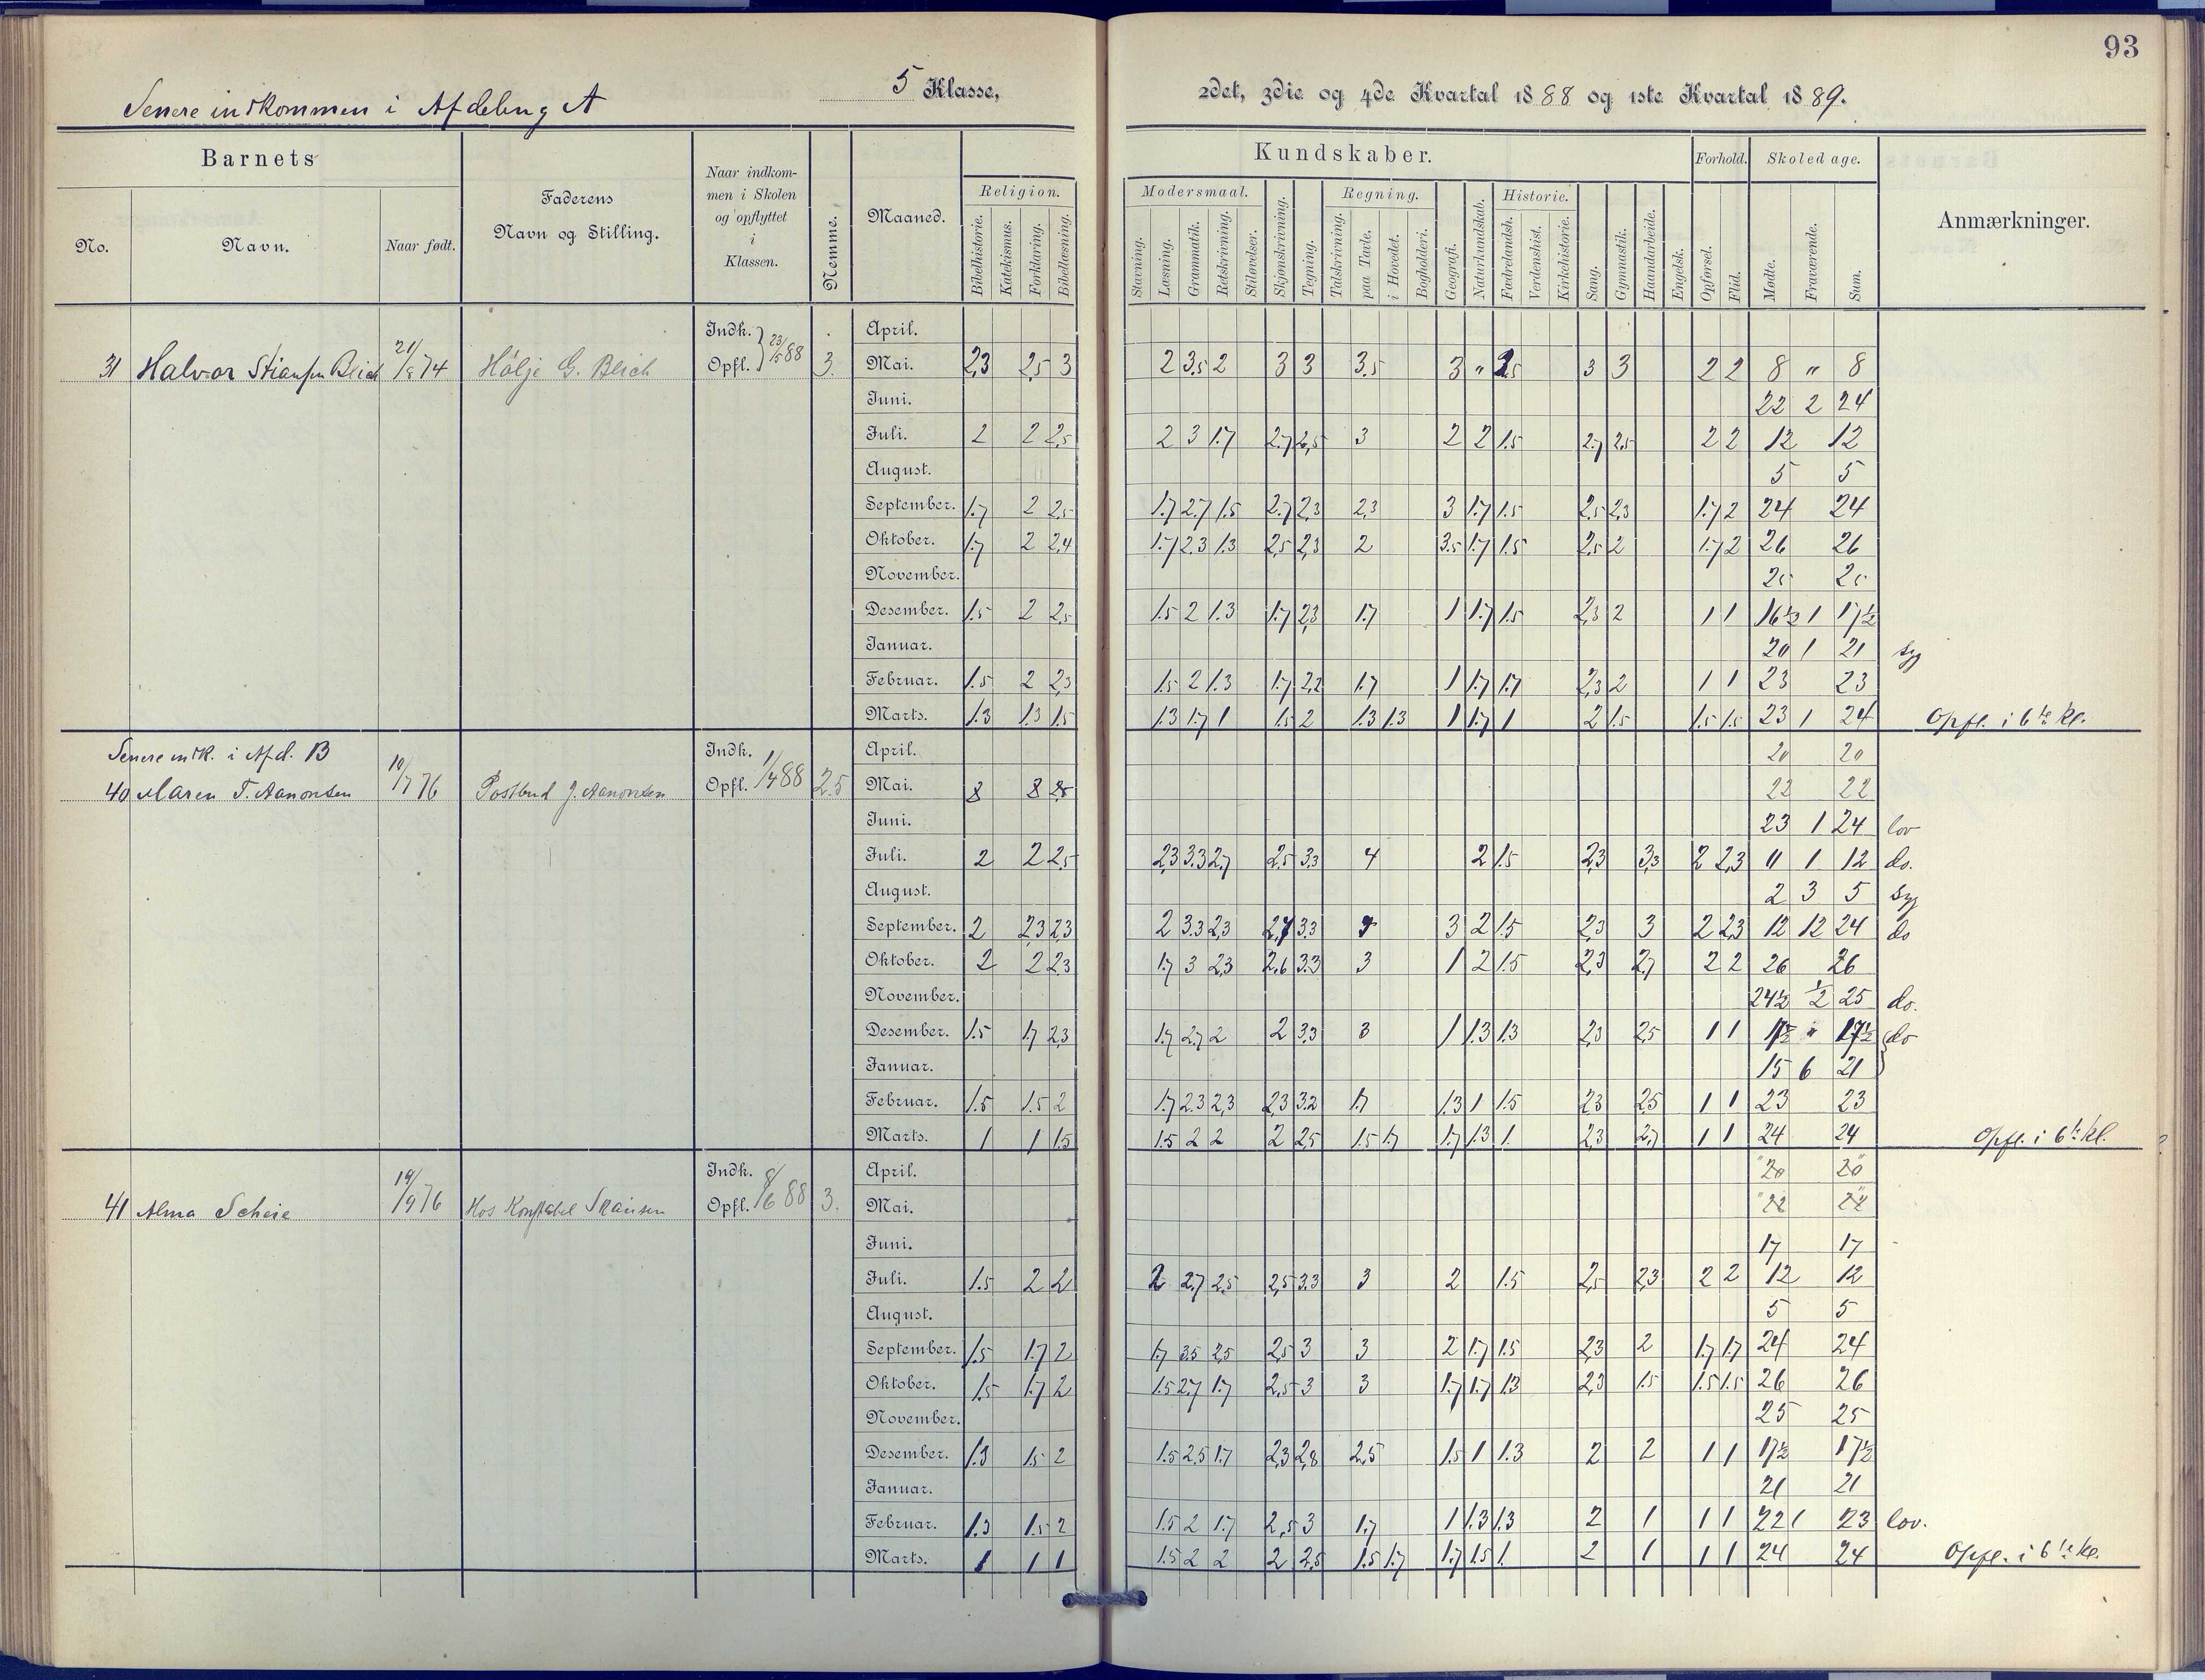 93
5 Klasse,
2det, 3die og 4de Kvartal 1888 og 1ste Kvartal 1889.
Senere indkommen i Afdeling A
Barnets
No.
Navn.
Naar født.
Faderens
Navn og Stilling.
Naar indkom-
men i Skolen
og opflyttet
i
Klassen.
Nemme.
Maaned.
Kundskaber.
Religion.
Bibelhistorie.
Katekismus.
Forklaring.
Bibellæsning.
Modersmaal.
Stavning.
Læsning.
Grammatik.
Retskrivning.
Stiløvelser.
Skjønskrivning.
Tegning.
Regning.
Talskrivning.
paa Tavle.
i Hovedet.
Bogholderi.
Geografi.
Naturkundskab.
Historie.
Fædrelandsh.
Verdenshist.
Kirkehistorie.
Sang.
Gymnastik.
Haandarbeide.
Engelsk.
Forhold.
Opførsel.
Flid.
Skoledage.
Mødte.
Fraværende.
Sum.
Anmærkninger.
Indk.
April.
31 Halvor Blich 74 G. Blich Opfl. 23/5 88 3. Mai. 2,3 2,5 3 2 3.5 2 3 3 3.5 3 " 3 3 2 2 8 " 8
Juni. 22 2 24
Juli. 2 2 2,5 2 3 1.7 2.7 2,5 3 2 2 1.5 2.7 2.5 2 2 12 12
August. 5 5
September. 1.7 2 2,5 1.7 2.7 1.5 2.7 2,3 2,3 3 1.7 1.5 2,5 2,3 1.7 2 24 24
Oktober. 1.7 2 2,4 1.7 2.3 1.3 2,5 2,3 2 3.5 1.7 1.5 2.5 2 1.7 2 26 26
November. 25 25
Desember. 1.5 2 2,5 1.5 2 1.3 1.7 2,3 1.7 1 1.7 1.5 2,3 2 1 1 16½ 1 17½
Januar. 20 1 21 Syg
Februar. 1.5 2 2,3 1.5 2 1.3 1.7 2,2 1.7 1 1.7 1.7 2,3 2 1 1 23 23
Marts. 1.3 1.3 1.5 1.3 1.7 1 1.5 2 1.3 1.3 1 1.7 1 2 1.5 1.5 1.5 23 1 24 Opfl. i 6te Kl.
Senere indk. i Afd. B Indk. April. 20 20
40 Maren T. Aanonsen 10/7 76 Postbud J. Aanonsen Opfl. 1/4 88 2.5 Mai. 22 22
Juni. 23 1 24 lov
Juli. 2 2 2,5 2,3 3.3 2,7 2,5 3,3 4 2 1.5 2,3 3,3 2 2,3 11 1 12 do.
August. 2 3 5 Syg
September. 2 2,3 2,3 2 3.3 2,3 2,7 3.3 3 2 1.5 2,3 3 2 2,3 12 12 24 do
Oktober. 2 2 2,3 1.7 3 2,3 2,6 3.3 3 1 2 1.5 2,3 2,7 2 2 26 26
November. 24½ ½ 25 do.
Desember. 1.5 1.7 2,3 1.7 2.7 2 2 3,3 3 1 1.3 1.3 2,3 2,5 1 1 17½ " 17½ do
Januar. 15 6 21
Februar. 1.5 1.5 2 1.7 2.3 2,3 2,3 3.2 1.7 1.3 1 1.5 2,3 2,5 1 1 23 23
Marts. 1 1 1.5 1.5 2 2 2 2,5 1.5 1.7 1.7 1.3 1. 2,3 2,7 1 1 24 24 Opfl. i 6te kl.
Indk. April. 20 20
41 Alma Scheie 19/9 76 Hos Konstabel Opfl. 8/6 88 3. Mai. 22 22
Juni. 17 17
Juli. 1.5 2 2 2 2.7 2.5 2,5 3.3 3 2 1.5 2,5 2,3 2 2 12 12
August. 5 5
September. 1.5 1.7 2 1.7 3.5 2.5 2,5 3 3 2 1.7 1.5 2,3 2 1.7 1.7 24 24
Oktober. 1.5 1.7 2 1.5 2.7 1.7 2,5 3 3 1.7 1.7 1.3 2,3 1.5 1.5 1.5 26 26
November. 25 25
Desember. 1.3 1.5 2 1.5 2.5 1.7 2,3 2,8 2,5 1.5 1 1.3 2 2 1 1 17½ 17½
Januar. 21 21
Februar. 1.3 1.5 2 1.5 2 1.7 2,5 3 1.7 1 1.3 1.3 2 1 1 1 22 1 23 lov.
Marts. 1 1 1 1.5 2 2 2 2,5 1.5 1.7 1.7 1.5 1. 2 1 1 1 24 24 Opfl. i 6te kl.